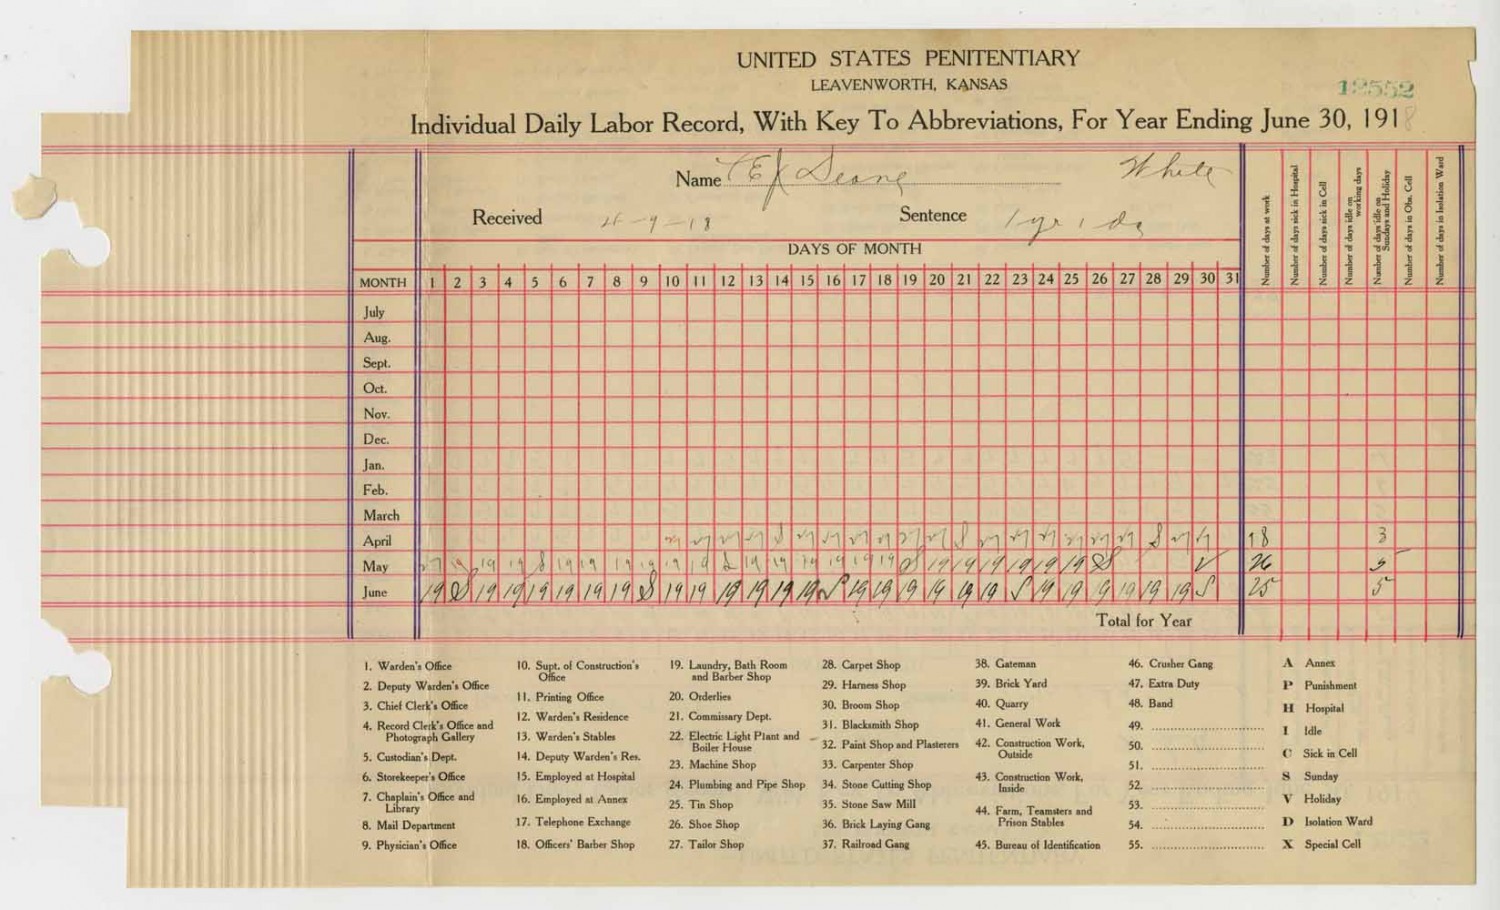 UNITED STATES PENITENTIARY
LEAVENWORTH, KANSAS
12552
Individual Daily Labor Record, With Key To Abbreviations, For Year Ending June 30, 1918
Name White
Received 4-9-18 Sentence 1 yr 1 da
DAYS OF MONTH
MONTH 1 2 3 4 5 6 7 8 9 10 11 12 13 14 15 16 17 18 19 20 21 22 23 24 25 26 27 28 29 30 31
Number of days at work
Number of days sick in Hospital
Number of days sick in Cell
Number of days idle on working days
Number of days idle on Sundays and Holiday
Number of days in Obs. Cell
Number of days in Isolation Ward
July
Aug.
Sept.
Oct.
Nov.
Dec.
Jan.
Feb.
March
April 18 3
May 26 5
June 19 S 19 19 19 19 19 19 S 19 19 19 19 19 19 S 19 19 19 19 19 19 S 19 19 19 19 19 19 S 25 5
Total for Year
1. Warden's Office
2. Deputy Warden's Office
3. Chief Clerk's Office
4. Record Clerk's Office and
Photograph Gallery
5. Custodian's Dept.
6. Storekeeper's Office
7. Chaplain's Office and
Library
8. Mail Department
9. Physician's Office
10. Supt. of Construction's
Office
11. Printing Office
12. Warden's Residence
13. Warden's Stables
14. Deputy Warden's Res.
15. Employed at Hospital
16. Employed at Annex
17. Telephone Exchange
18. Officers' Barber Shop
19. Laundry, Bath Room
and Barber Shop
20. Orderlies
21. Commissary Dept.
22. Electric Light Plant and
Boiler House
23. Machine Shop
24. Plumbing and Pipe Shop
25. Tin Shop
26. Shoe Shop
27. Tailor Shop
28. Carpet Shop
29. Harness Shop
30. Broom Shop
31. Blacksmith Shop
32. Paint Shop and Plasterers
33. Carpenter Shop
34. Stone Cutting Shop
35. Stone Saw Mill
36. Brick Laying Gang
37. Railroad Gang
38. Gateman
39. Brick Yard
40. Quarry
41. General Work
42. Construction Work,
Outside
43. Construction Work,
Inside
44. Farm, Teamsters and
Prison Stables
45. Bureau of Identification
46. Crusher Gang
47. Extra Duty
48. Band
49.
50.
51.
52.
53.
54.
55.
A Annex
P Punishment
H Hospital
I Idle
C Sick in Cell
S Sunday
V Holiday
D Isolation Ward
X Special Cell